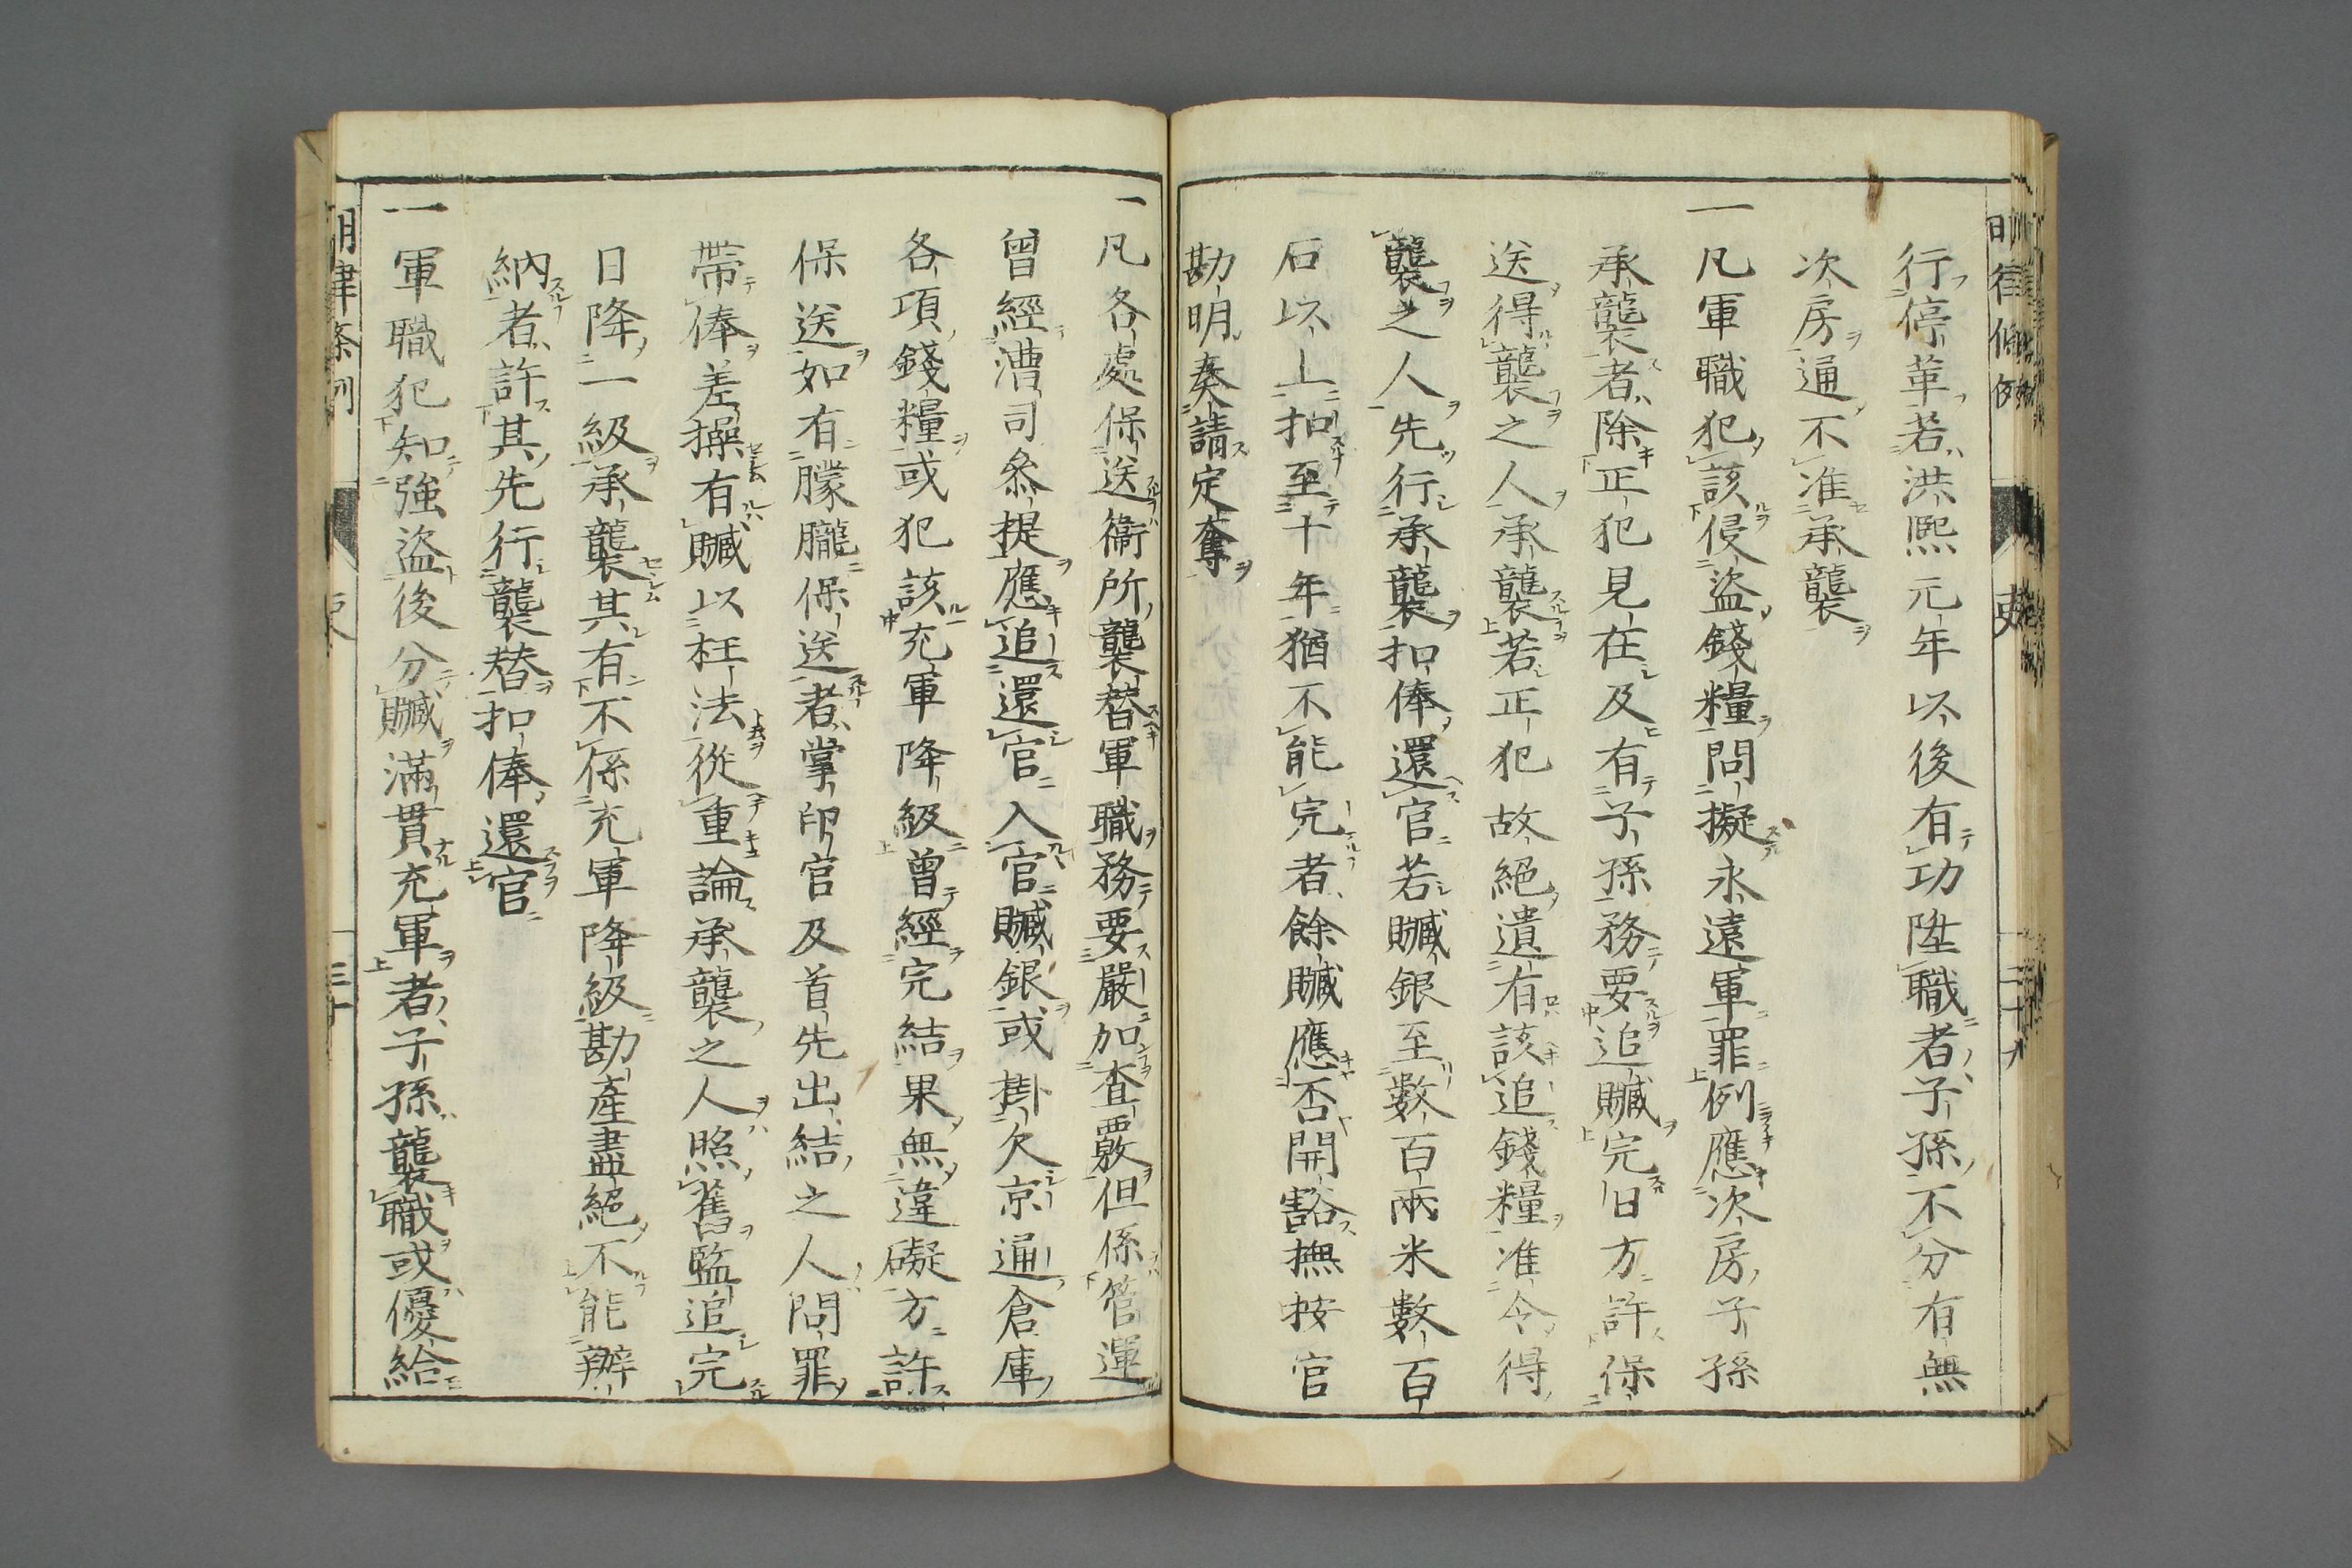 行停革若洪熙元年以後有功陞職者子孫不分有無
次房通不准承襲
一凡軍職犯該侵盜錢糧問擬永遠軍罪例應次房子孫
承襲者除正犯見在及有子孫務要追贓完日方許保
送得襲之人承襲若正犯故絕遺有該追錢糧准令得
襲之人先行承襲扣俸還官若贓銀至數百兩米數百
石以上扣至十年猶不能完者餘贓應否開豁撫按官
勘明奏請定奪
一凡各處保送衞所襲替軍職務要嚴加查覈但係管運
曾經漕司叅提應追還官入官贓銀或掛欠京通倉庫
各項錢糧或犯該充軍降級曾經完結果無違礙方許
保送如有朦朧保送者掌印官及首先出結之人問罪
帶俸差操有贓以枉法從重論承襲之人照舊監追完
日降一級承襲其有不係充軍降級勘產盡絕不能辦
納者許其先行襲替扣俸還官
一軍職犯知強盜後分贓滿貫充軍者子孫襲職或優給
明律條例
吏
三十